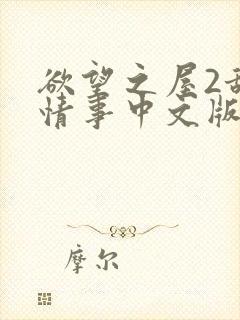 欲望之屋2
情事中文版
摩尔